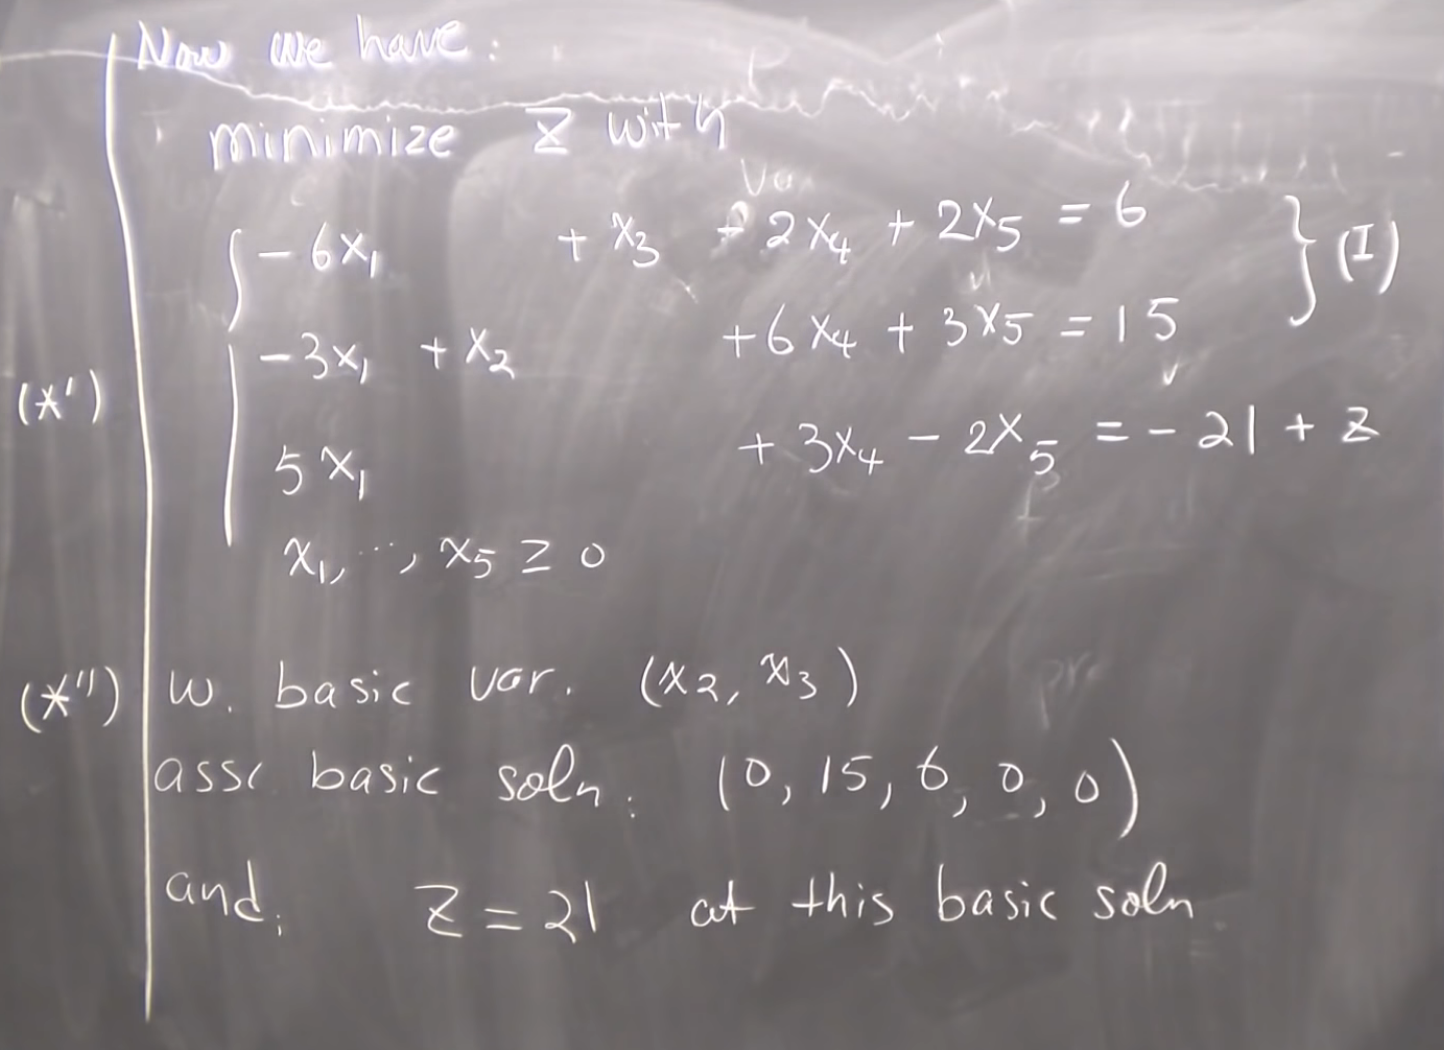 Now we have:
minimize Z with
-6x₁ + x₃ - 2x₄ + 2x₅ = 6 } (I)
-3x₁ + x₂ +6x₄ + 3x₅ = 15
(*')
5x₁ + 3x₄ - 2x₅ = -21 + Z
x₁, ..., x₅ ≥ 0
(*'') w. basic var. (x₂, x₃)
assc basic soln. (0, 15, 6, 0, 0)
and, Z = 21 at this basic soln